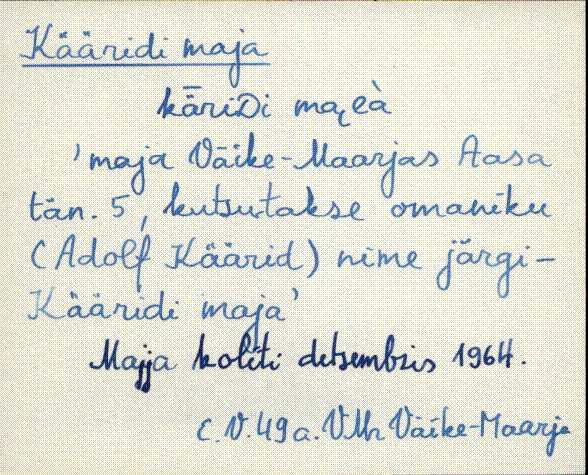 Kääridi maja
käriDi
'maja Väike-Maarjas Aasa
tän. 5, kutsutakse omaniku
(Adolf Käärid) nime järgi-
Kääridi maja'
Majja koliti detsembris 1964.
C.V. 49 a. VMr Väike-Maarja